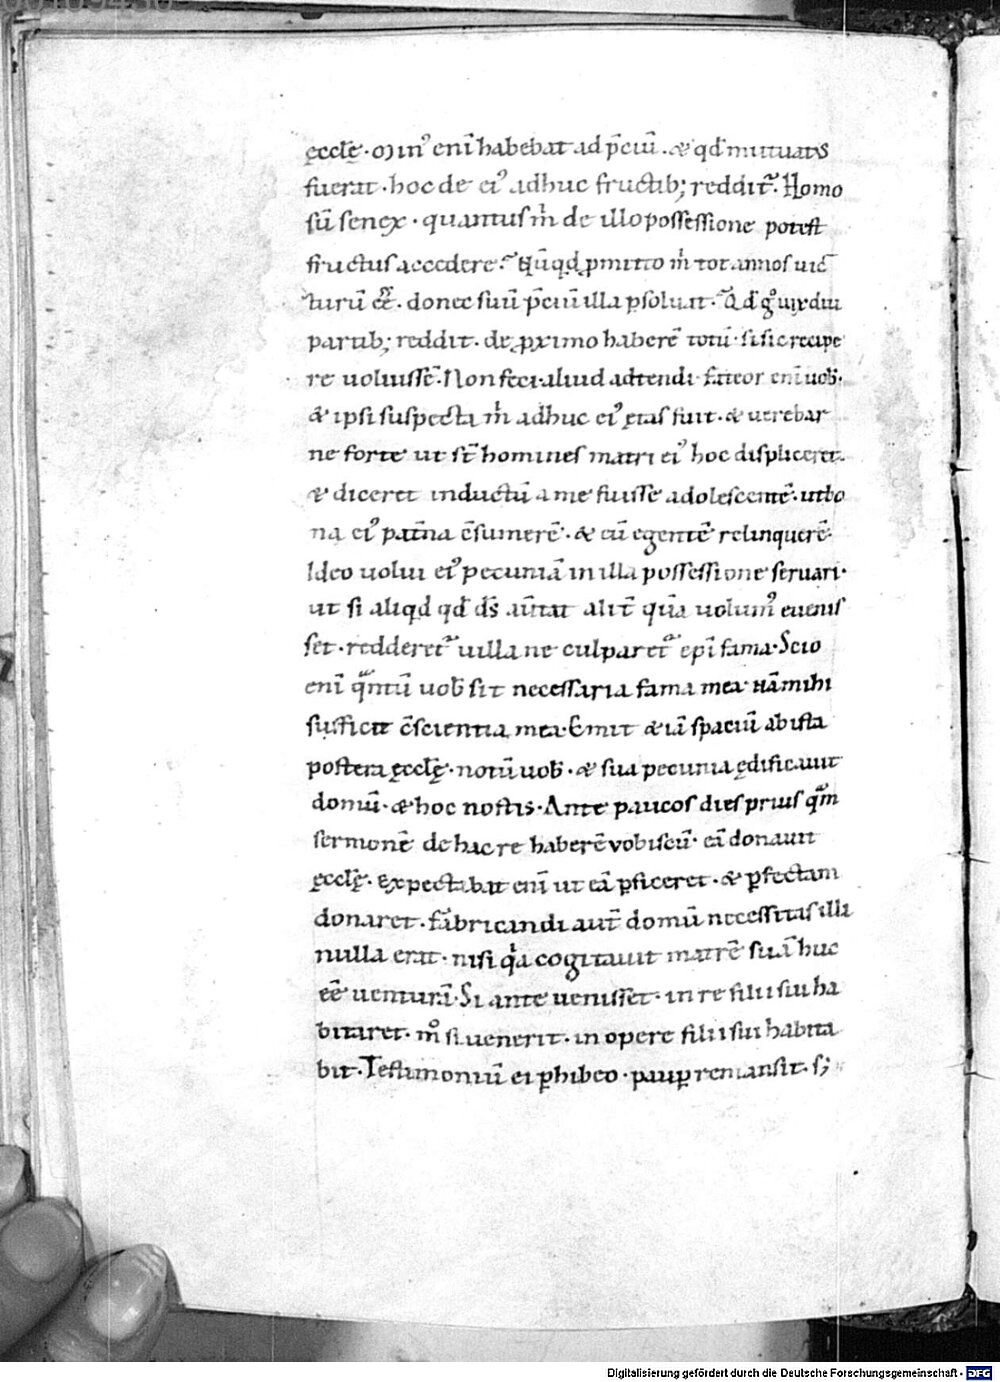 ęccłę · Min᾽ eni̅ habebat ad p̅ciu̅ . & qđ mutuatus
fuerat · hoc de ei᾽ adhuc fructib; reddit᷑ · Homo
su̅ senex · quantus m̍ de illo possessione potest
fructus accedere · Nu̅qd ꝓmitto m̍ tot annos uic
turu̅ e̅e̅ · donec suu̅ p̅ciu̅ illa p̱soluat · Qđ g̊ uix diu
partib; reddit · de ꝓximo habere̅ totu̅ · si sic recipe
re uoluisse̅ · Non feci · aliud adtendi · fateor eni̅ uob̅ ·
& ipsi suspecta m̍ adhuc ei᾽ ętas fuit · & uerebar
ne forte ut st̅ homines matri ei᾽ hoc displiceret ·
& diceret inductu̅ a me fuisse adolescente̅ · ut bo
na ei᾽ pat̅na c̅sumere̅ · & eu̅ egente̅ relinquere̅ ·
Ideo uolui ei᾽ pecunia̅ in illa possessione seruari ·
ut si aliqd qđ ds̅ au̅tat alit̅ qua̅ uolum᾽ euenis
set · redderet᷑ uilla ne culparet᷑ epi̅ fama · Scio
eni̅ qᷓntu̅ uob̅ sit necessaria fama mea · na̅ mihi
sufficit c̅scientia mea · Emit & ia̅ spaciu̅ ab ista
postera ęccłę · notu̅ uob̅ · & sua pecunia ędificauit
domu̅ · & hoc nostis · Ante paucos dies prius qᷓm
sermone̅ de hac re habere̅ vobiscu̅ · ea̅ donauit
ęccłę · Expectabat eni̅ ut ea̅ p̱ficeret · & p̱fectam
donaret · fabricandi aut̅ domu̅ necessitas illa
nulla erat · nisi qa̍ cogitauit matre̅ sua̅ huc
e̅e̅ uentura̅ · Si ante uenisset · in re filii sui ha
bitaret · m̊ si uenerit · in opere filii sui habita
bit · Testimoniu̅ ei p̱hibeo · paup̱ remansit · s;
Digitalisierung gefördert durch die Deutsche Forschungsgemeinschaft - DFG